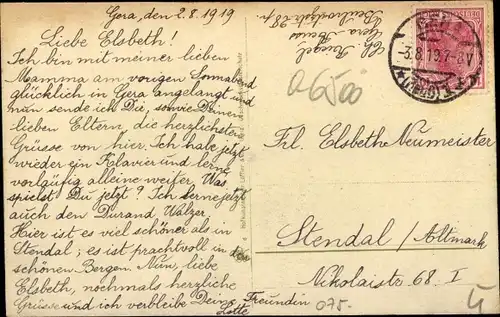 Gera, den 2.8.1919
Liebe Elsbeth!
Ich bin mit meiner lieben
Mamma am vorigen Sonnabend
glücklich in Gera angelangt und
nun sende ich Dir, sowie Deinen
lieben Eltern, die herzlichsten
Grüsse von hier. Ich habe jetzt
wieder ein Klavier und lerne
vorläufig alleine weiter. Was
spielst Du jetzt? Ich lerne jetzt
auch den Durand Walzer.
Hier ist es viel schöner als in
Stendal; es ist prachtvoll in den
schönen Bergen. Nun, liebe
Elsbeth, nochmals herzliche
Grüsse und ich verbleibe Deine Freundin
Lotte
Gera Reuss
3.8.19.7-8V
a6500
Frl. Elsbeth Neumeister
Stendal / Altmark
Nikolaistr. 68. I
075.-